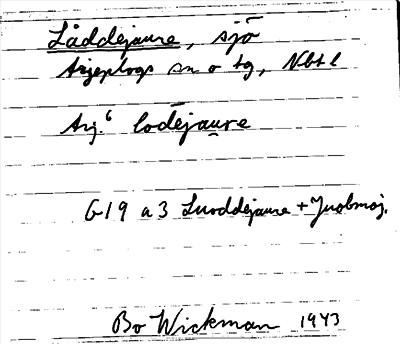 Låddejaure, sjö
Arjeplogs sn o tg, Nbtl
Arj.⁶ lodējau̯re
G19 a3 Luoddejaure + Juobmoj.
Bo Wickman 1943